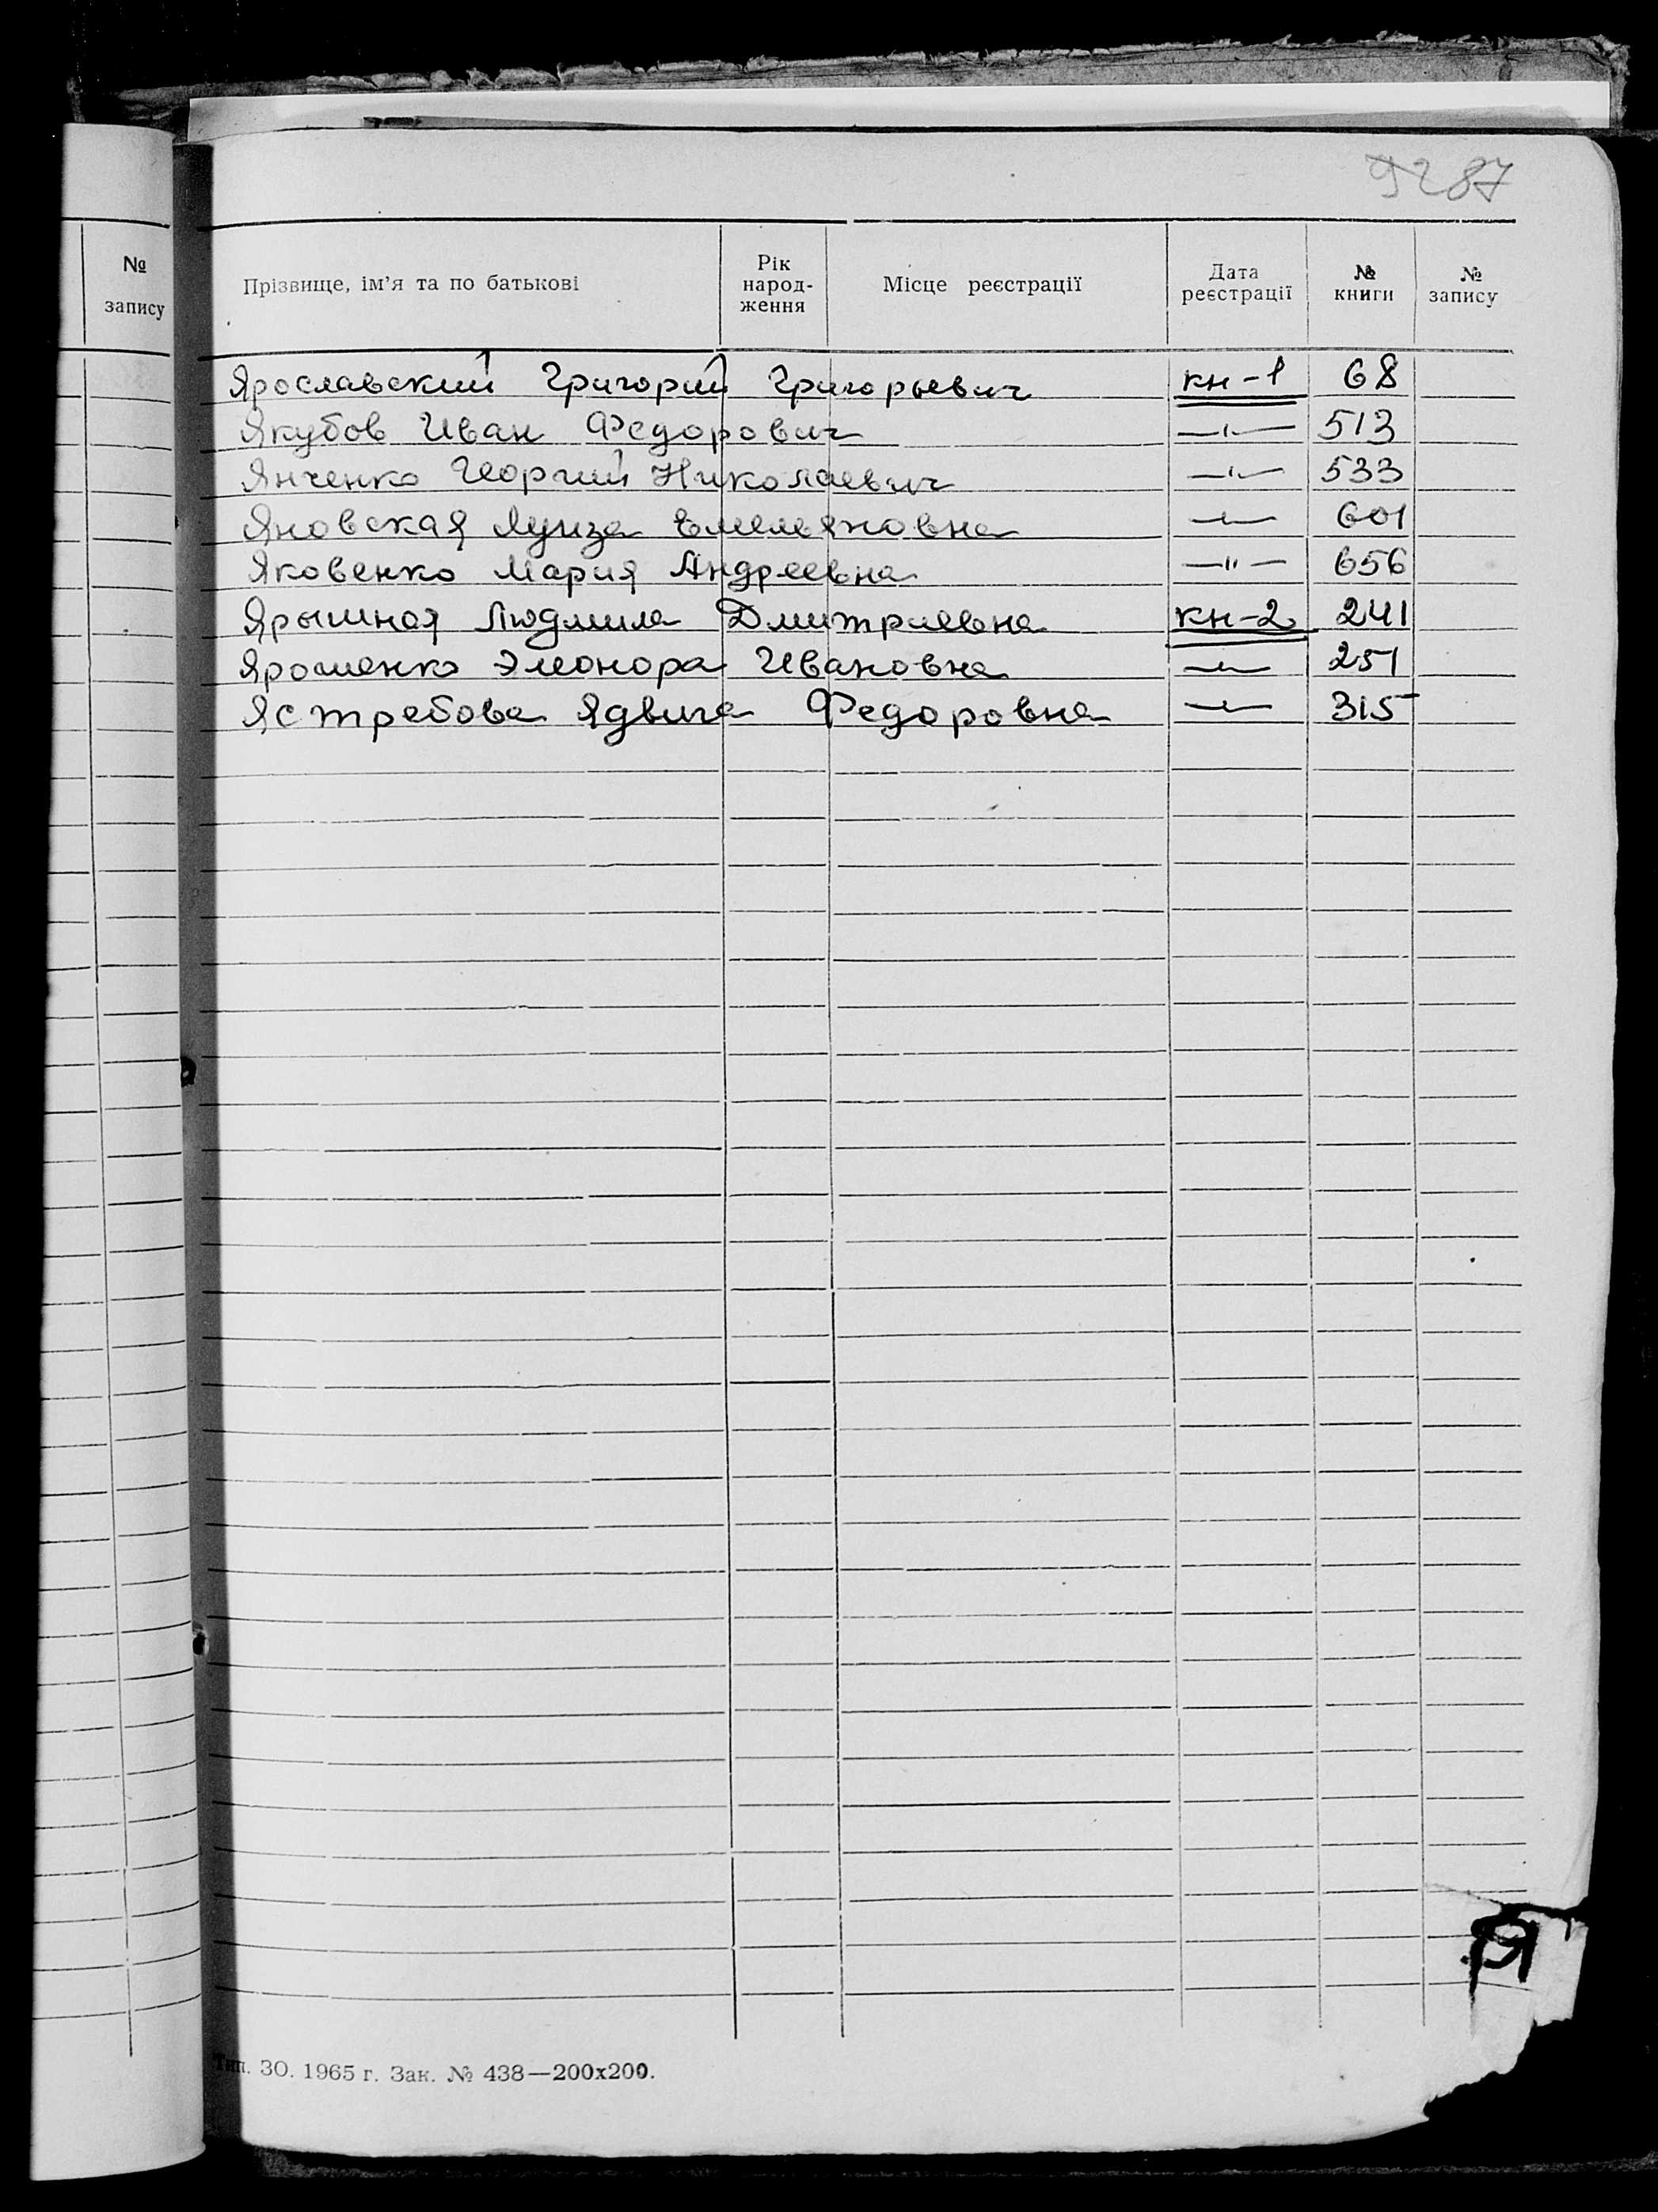 92 87
№ запису
Прізвище, ім'я та по батькові Рік народ-ження Місце реєстрації Дата реєстрації № книги № запису
Ярославский Григорий Григорьевич кн-1 68
Якубов Иван Федорович —"— 513
Янченко Георгий Николаевич —"— 533
Яновская Луиза Емельяновна —"— 601
Яковенко Мария Андреевна —"— 656
Ярышная Людмила Дмитриевна кн-2 241
Ярошенко Элеонора Ивановна —"— 251
Ястребова Ядвига Федоровна —"— 315
Я
Тип. ЗО. 1965 г. Зак. № 438—200х200.